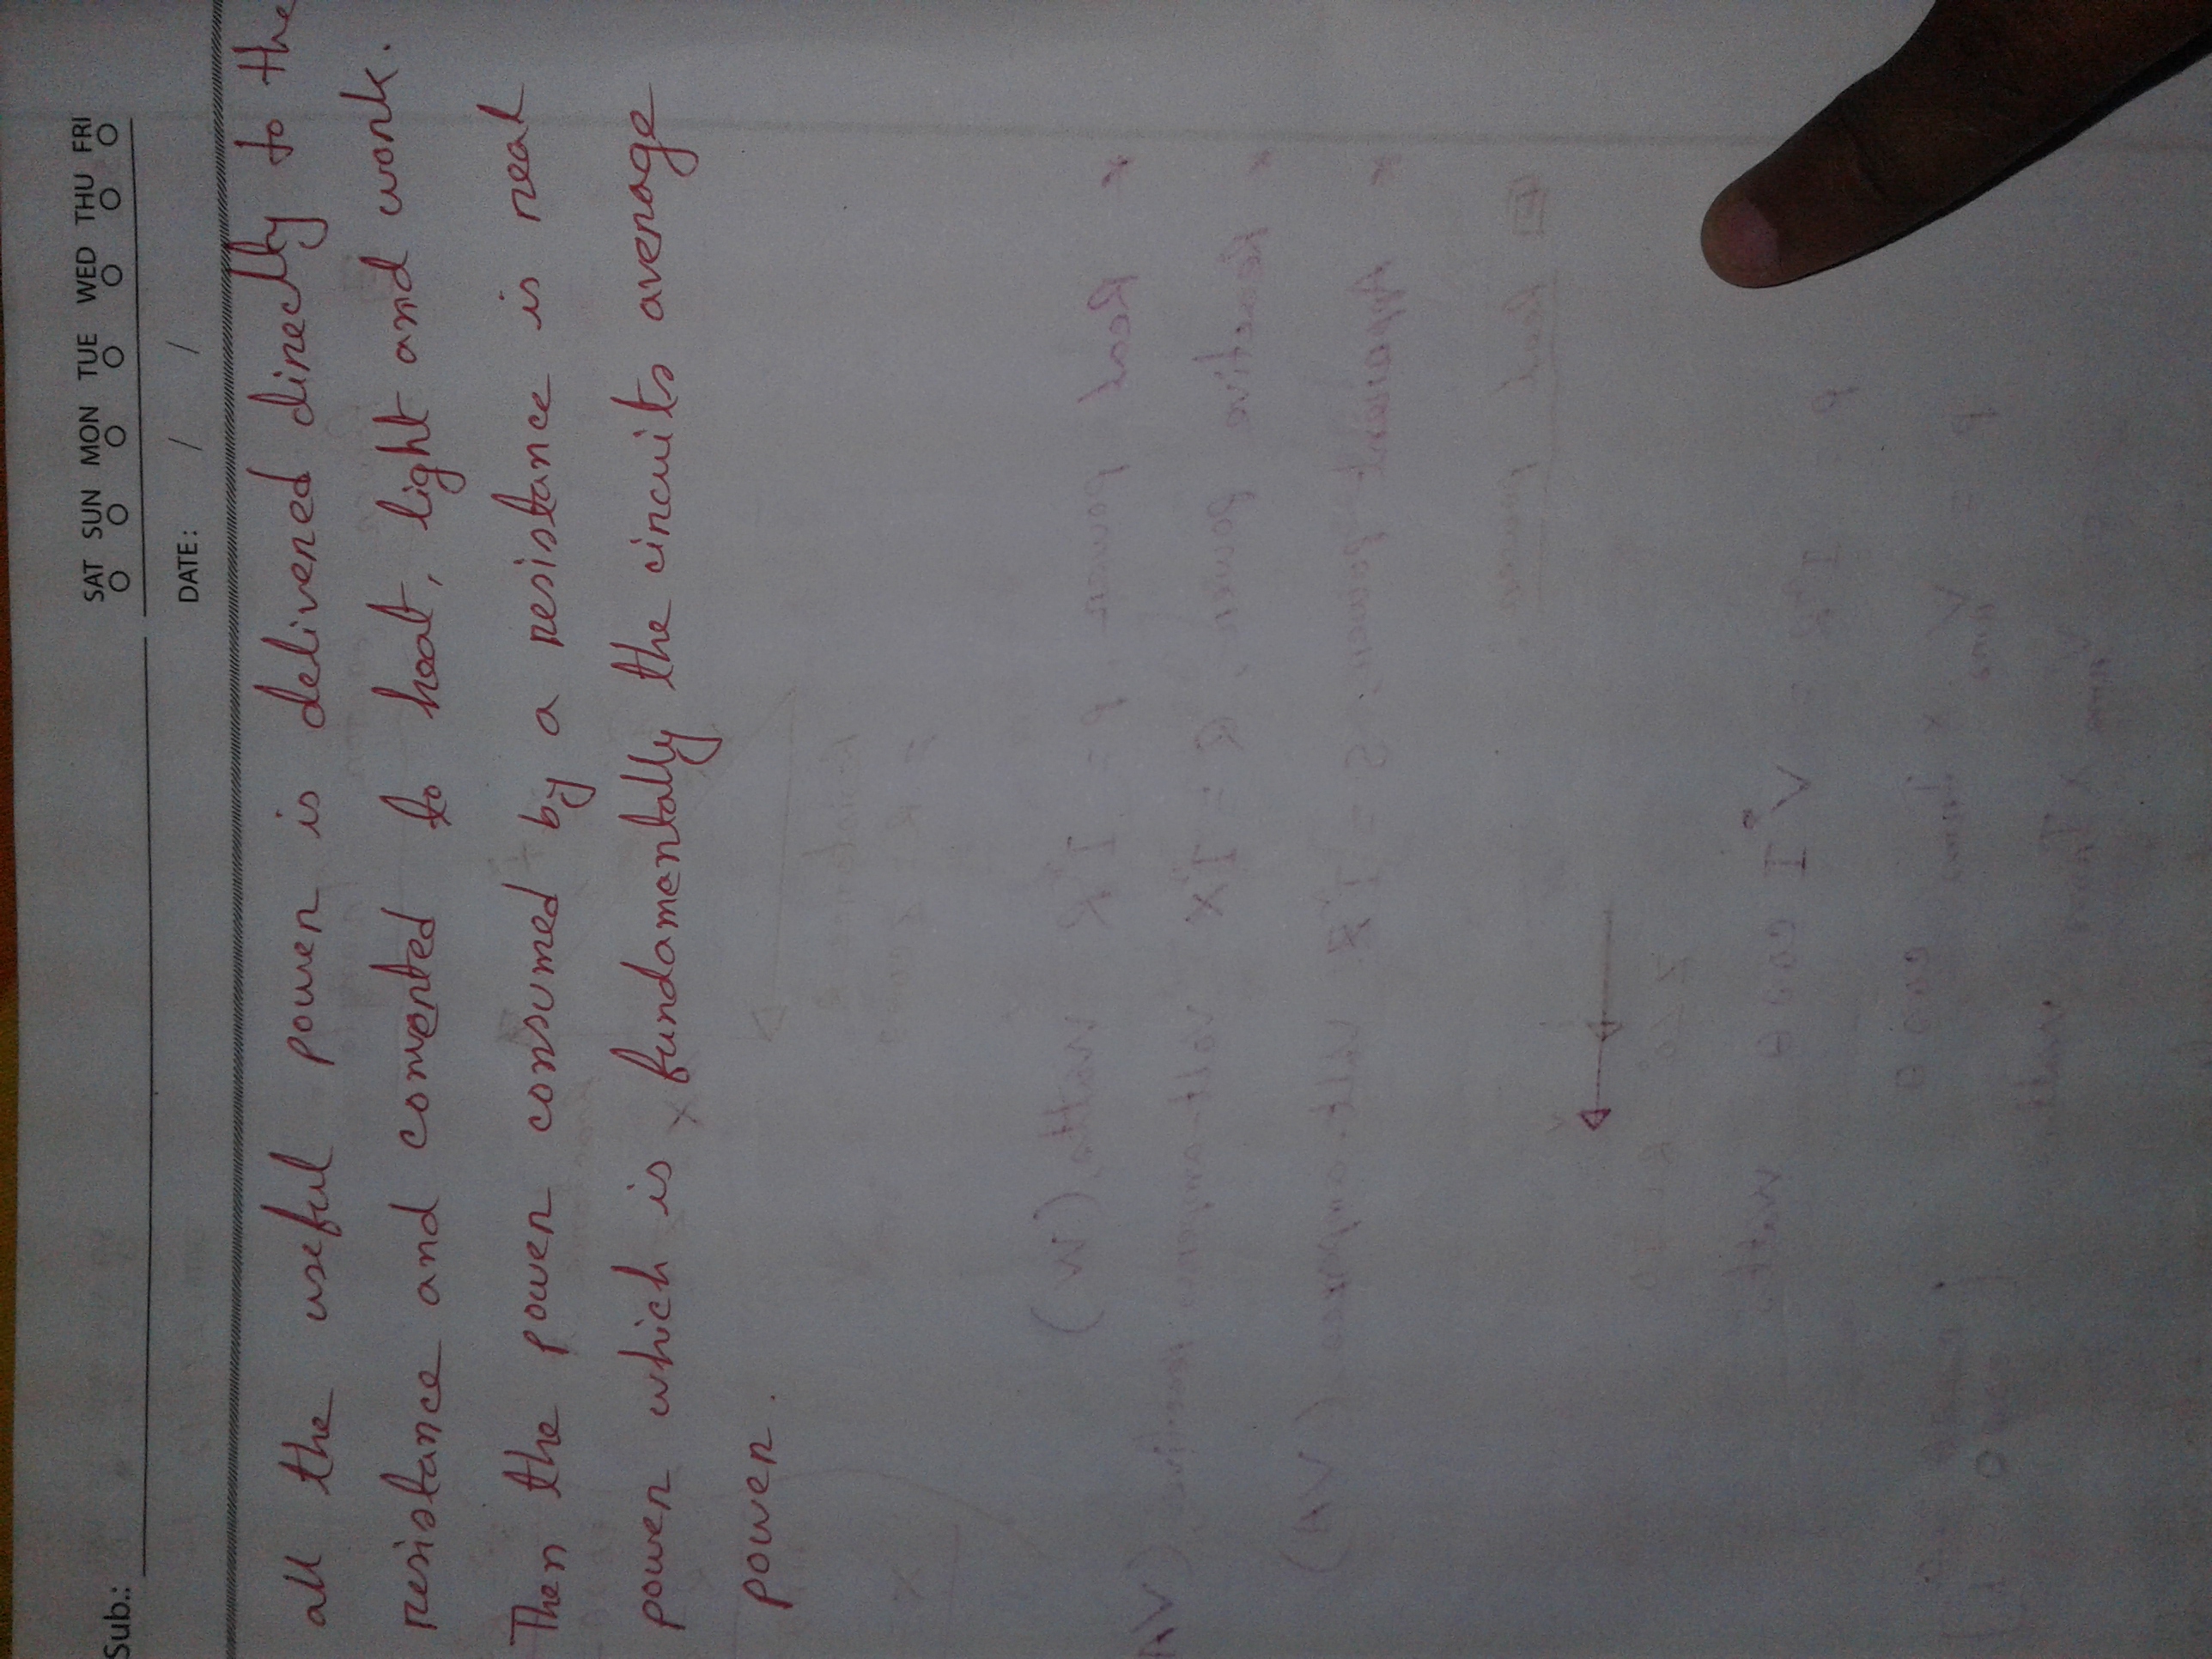 Sub.:
SAT SUN MON TUE WED THU FRI
DATE: / /
all the useful power is delivered directly to the
resistance and converted to heat, light and work.
Then the power consumed by a resistance is real
power which is fundamentally the circuits average
power.